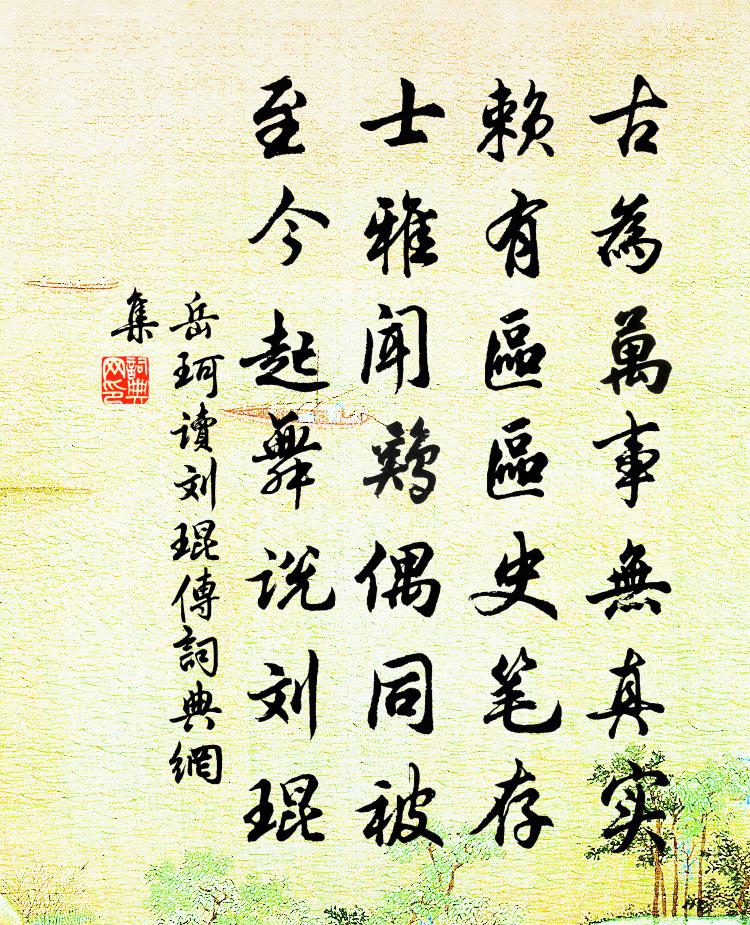 古為萬事無真实
賴有區區史笔存
士雅闻鷄偶同被
至今起舞说刘琨
岳珂讀刘琨傳詞典網
集
詞典网印